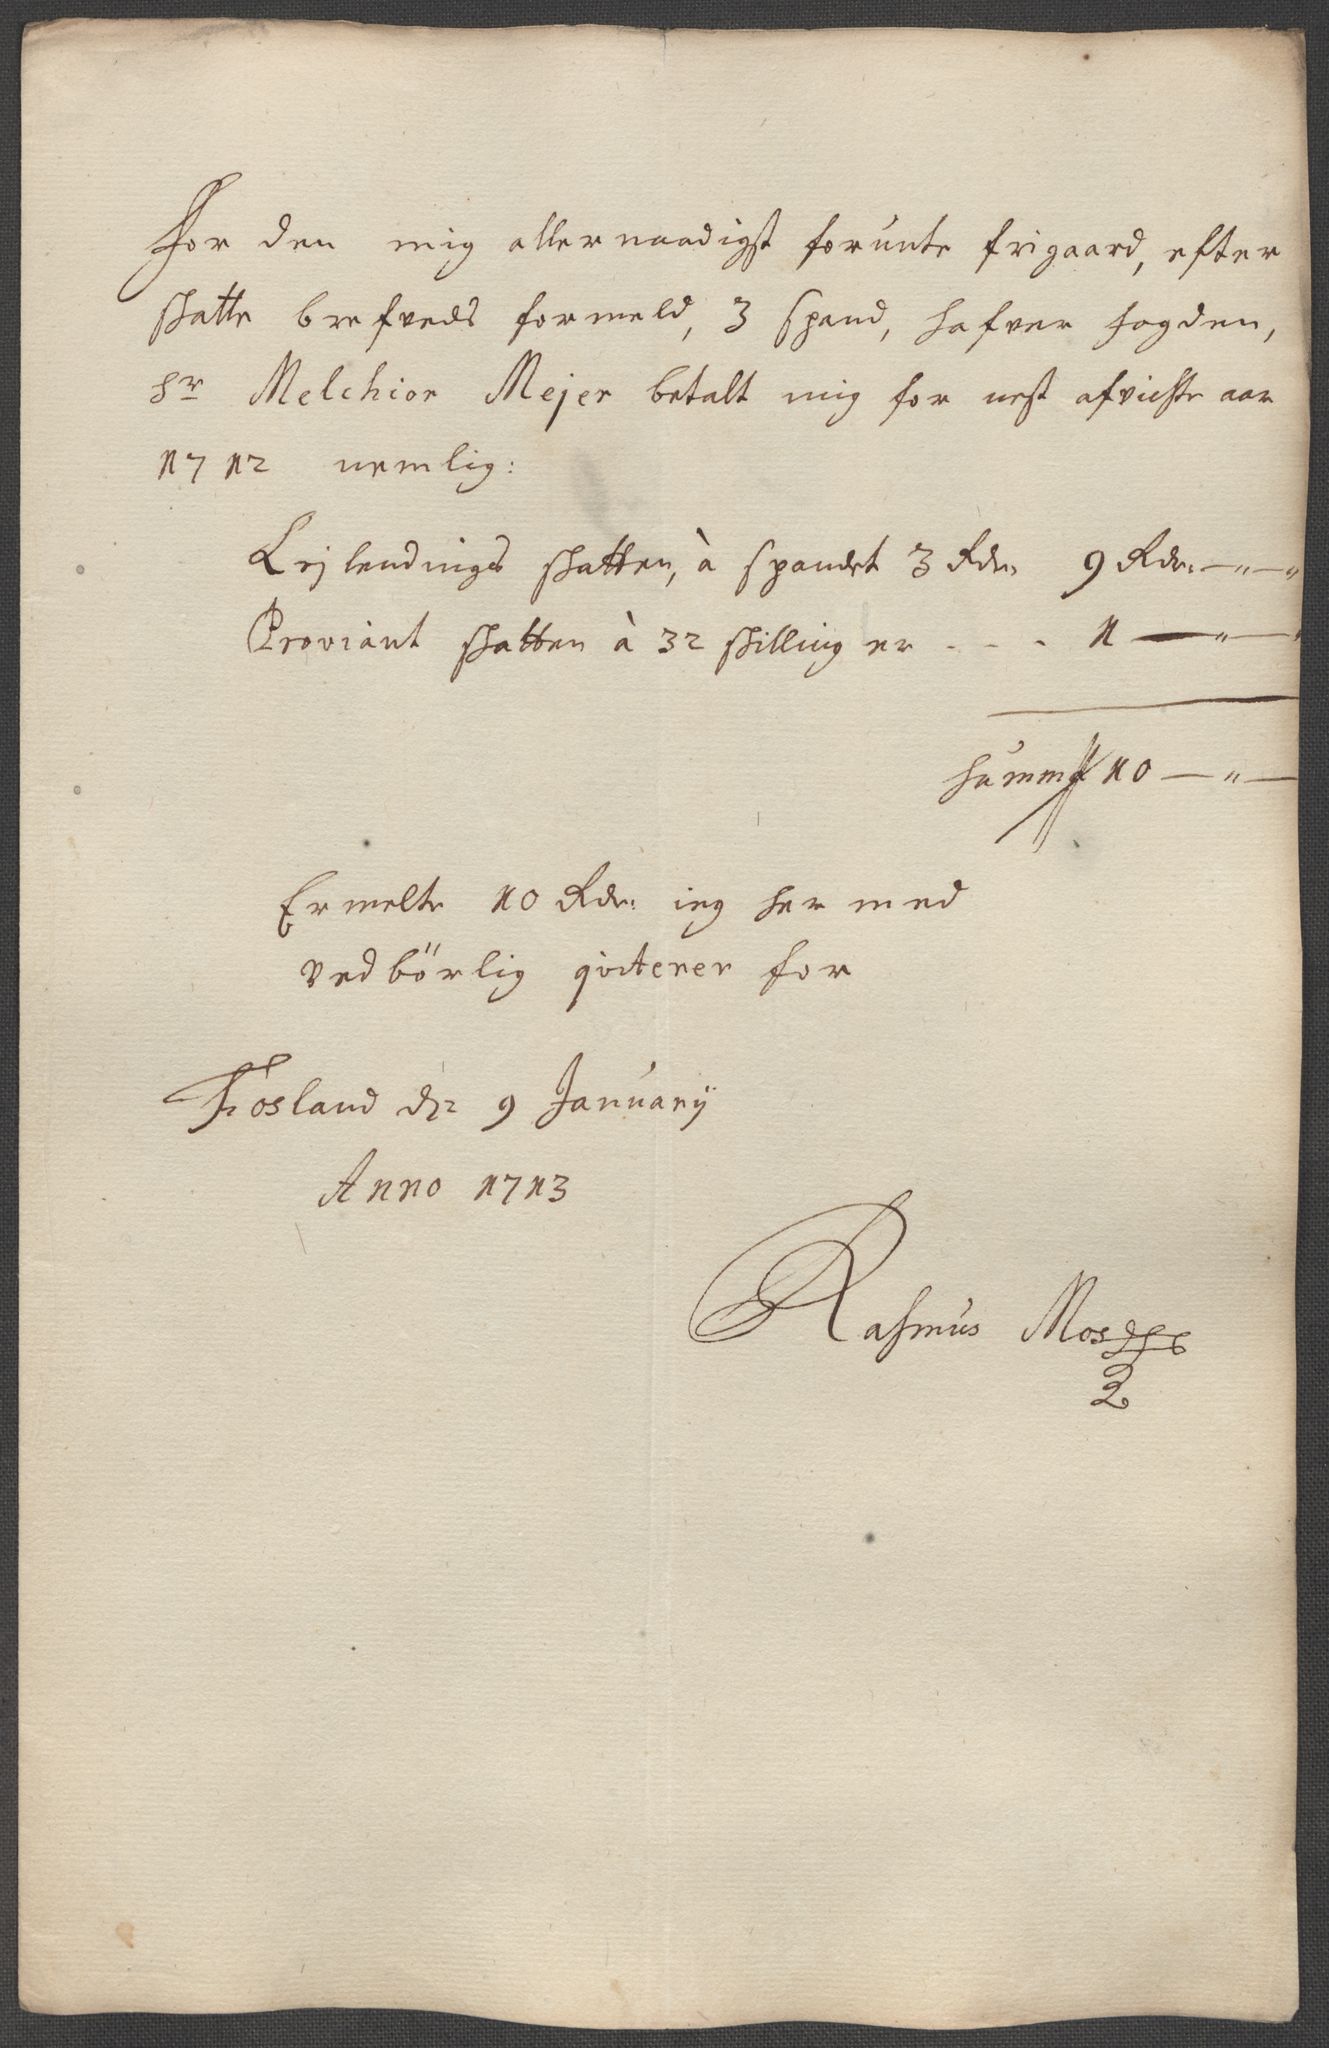 For den mig allernaadigst forunte frigaard, efter
skatte brefveds formeld, 3 spand, hafver fogden,
Hr Melchior Mejer betalt mig for nest afvichte aar
1712 nemlig:
Lejlendings skatten, à spandet 3 Rdr. 9 Rdr: — " — "
Proviant skatten à 32 skillinger - - - 1 — " —
Summa 10 — " —
Ermelte 10 Rdr: ieg her med
vedbörlig qviterer for
Fosland d. 9 Januarij
Anno 1713
Rasmus